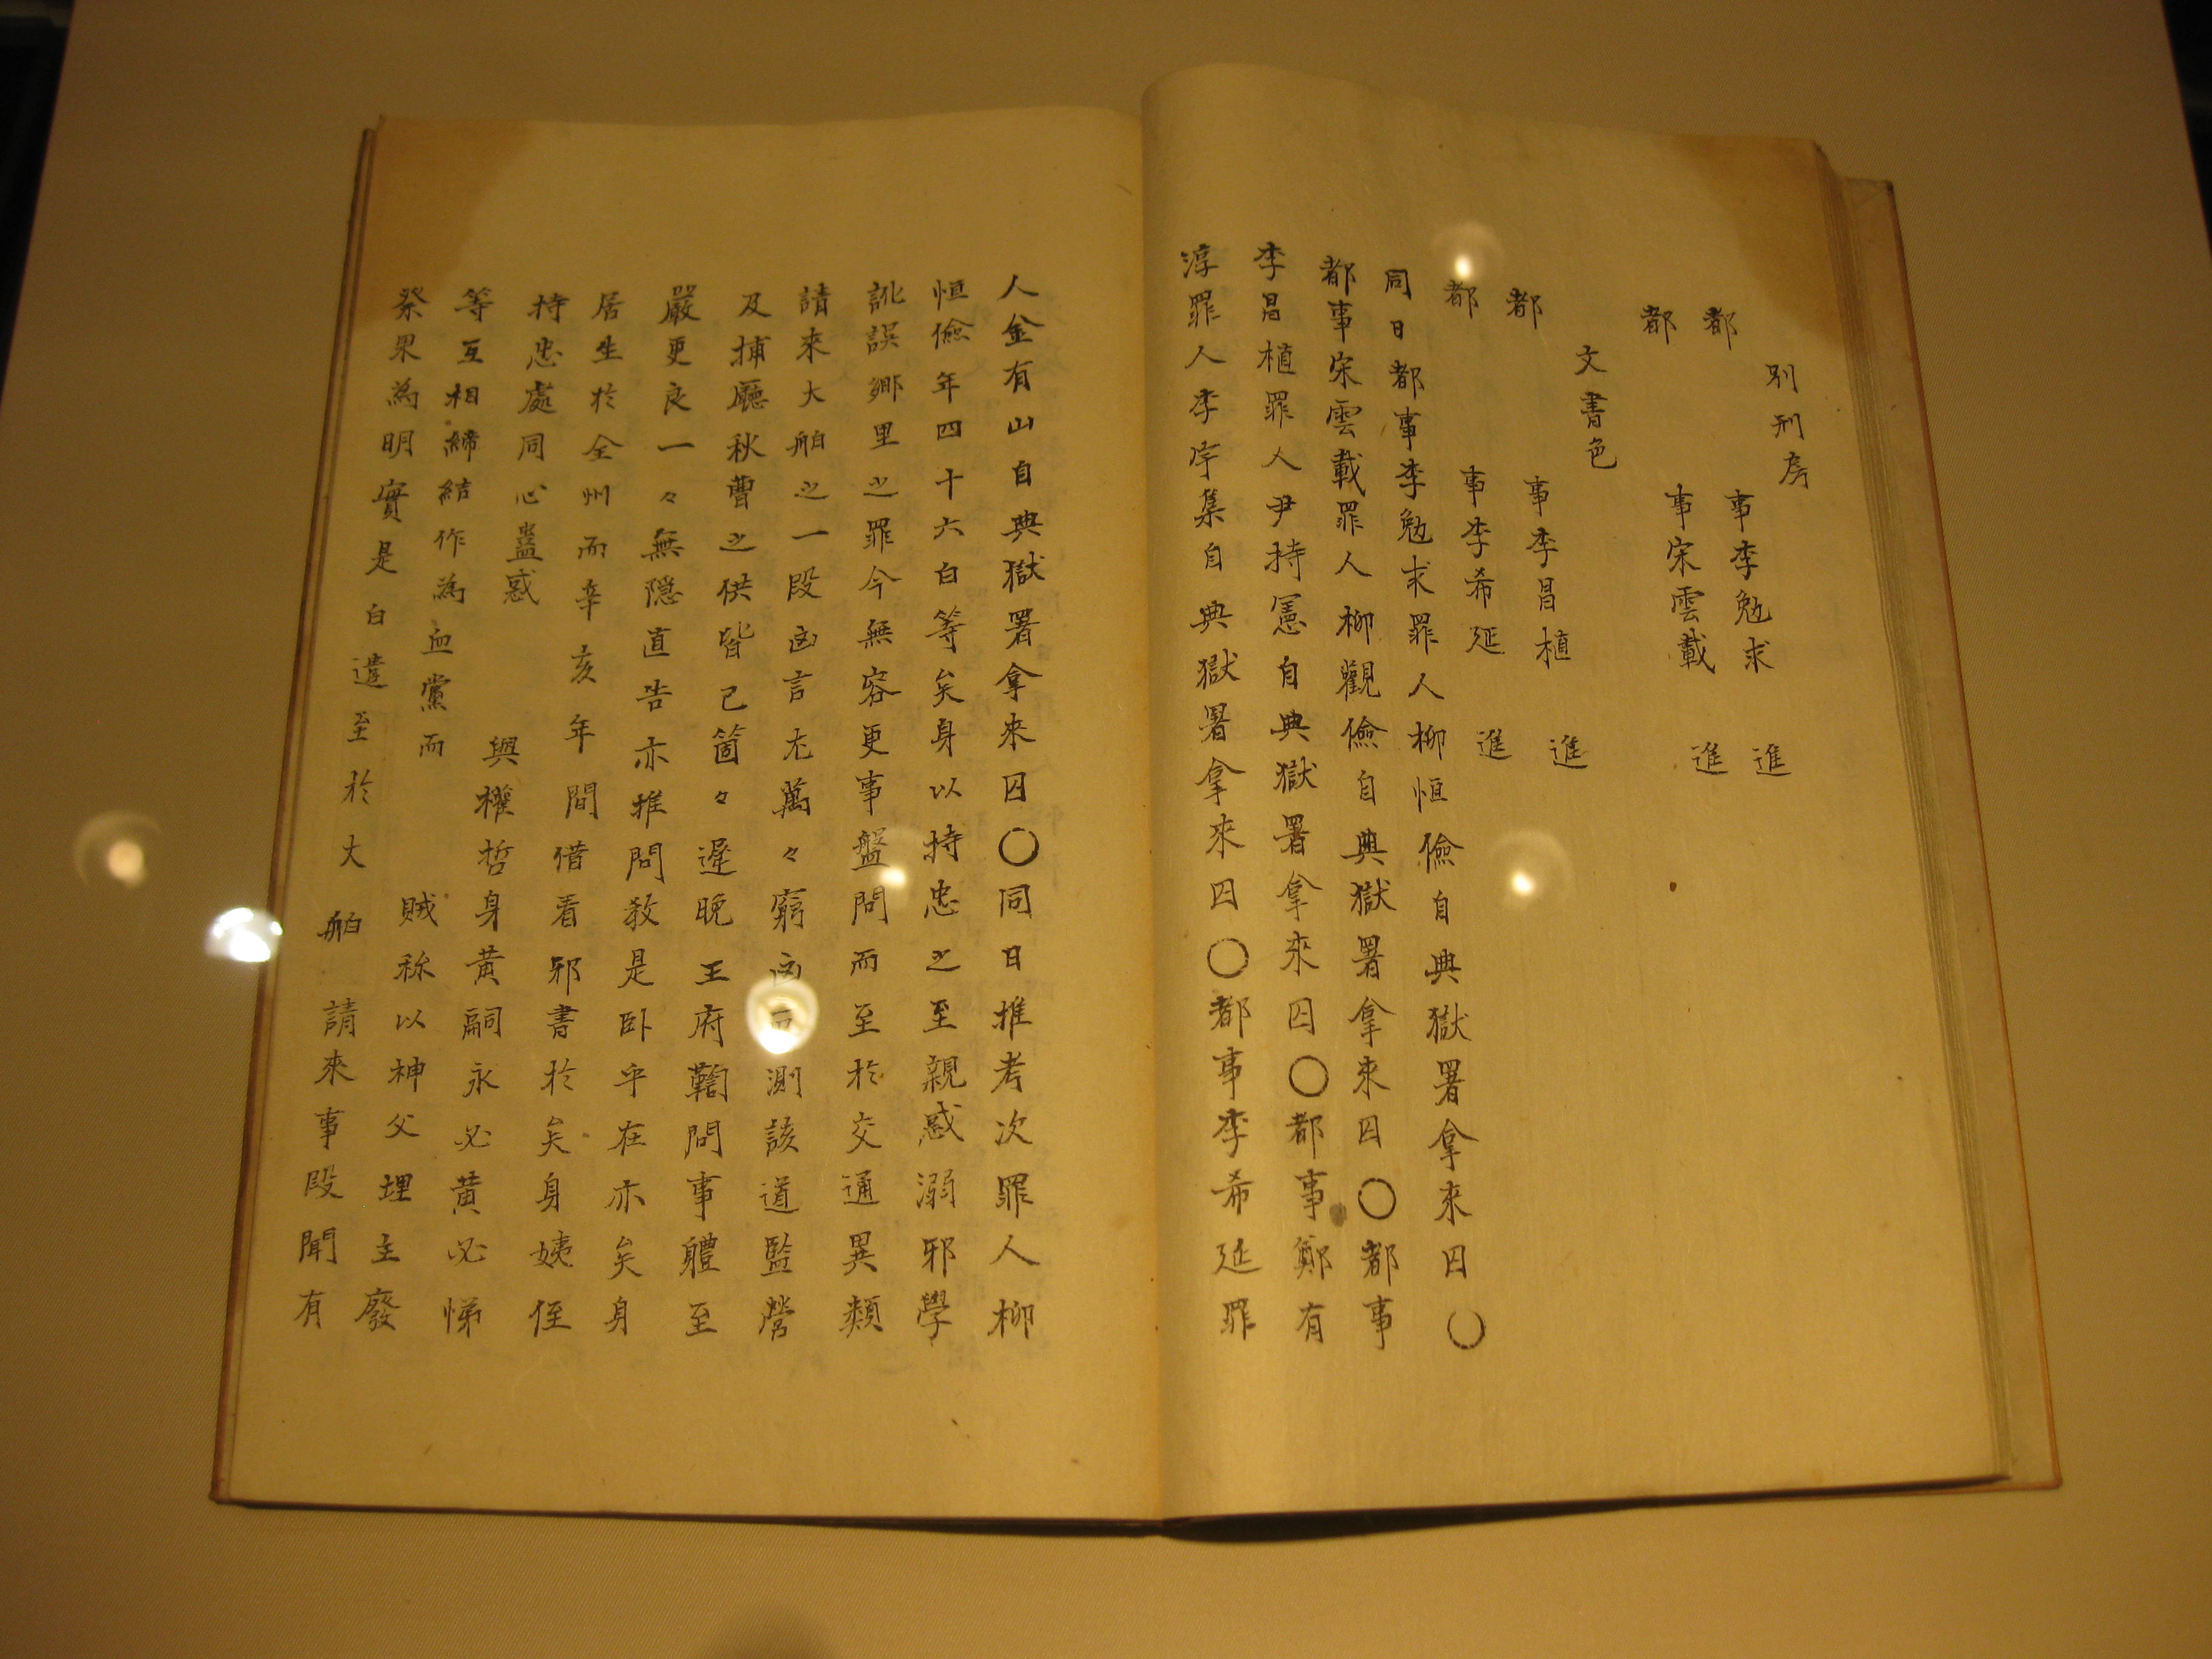 別刑房
都事李勉求進
都事宋雲載進
文書色
都事李昌植進
都事李希延進
同日都事李勉求罪人柳恒儉自典獄署拿來囚○
都事宋雲載罪人柳觀儉自典獄署拿來囚○都事
李昌植罪人尹持憲自典獄署拿來囚○都事鄭有
淳罪人李宇集自典獄署拿來囚○都事李希延罪
人金有山自典獄署拿來囚○同日推考次罪人柳
恒儉年四十六白等矣身以持忠之至親惑溺邪學
訛誤鄉里之罪今無容更事盤問而至於交通異類
請來大舶之一段凶言尤萬々窮凶測該道監營
及捕廳秋曹之供皆已箇々遲晚王府鞫問事軆至
嚴更良一々無隱直告亦推問敎是卧乎在亦矣身
居生於全州而辛亥年間借看邪書於矣身姨侄
持忠處同心蠱惑與權哲身黃嗣永必黃必悌
等互相締結作為血黨而賊稱以神父埋主廢
祭果為明實是白遣至於大舶請來事段聞有